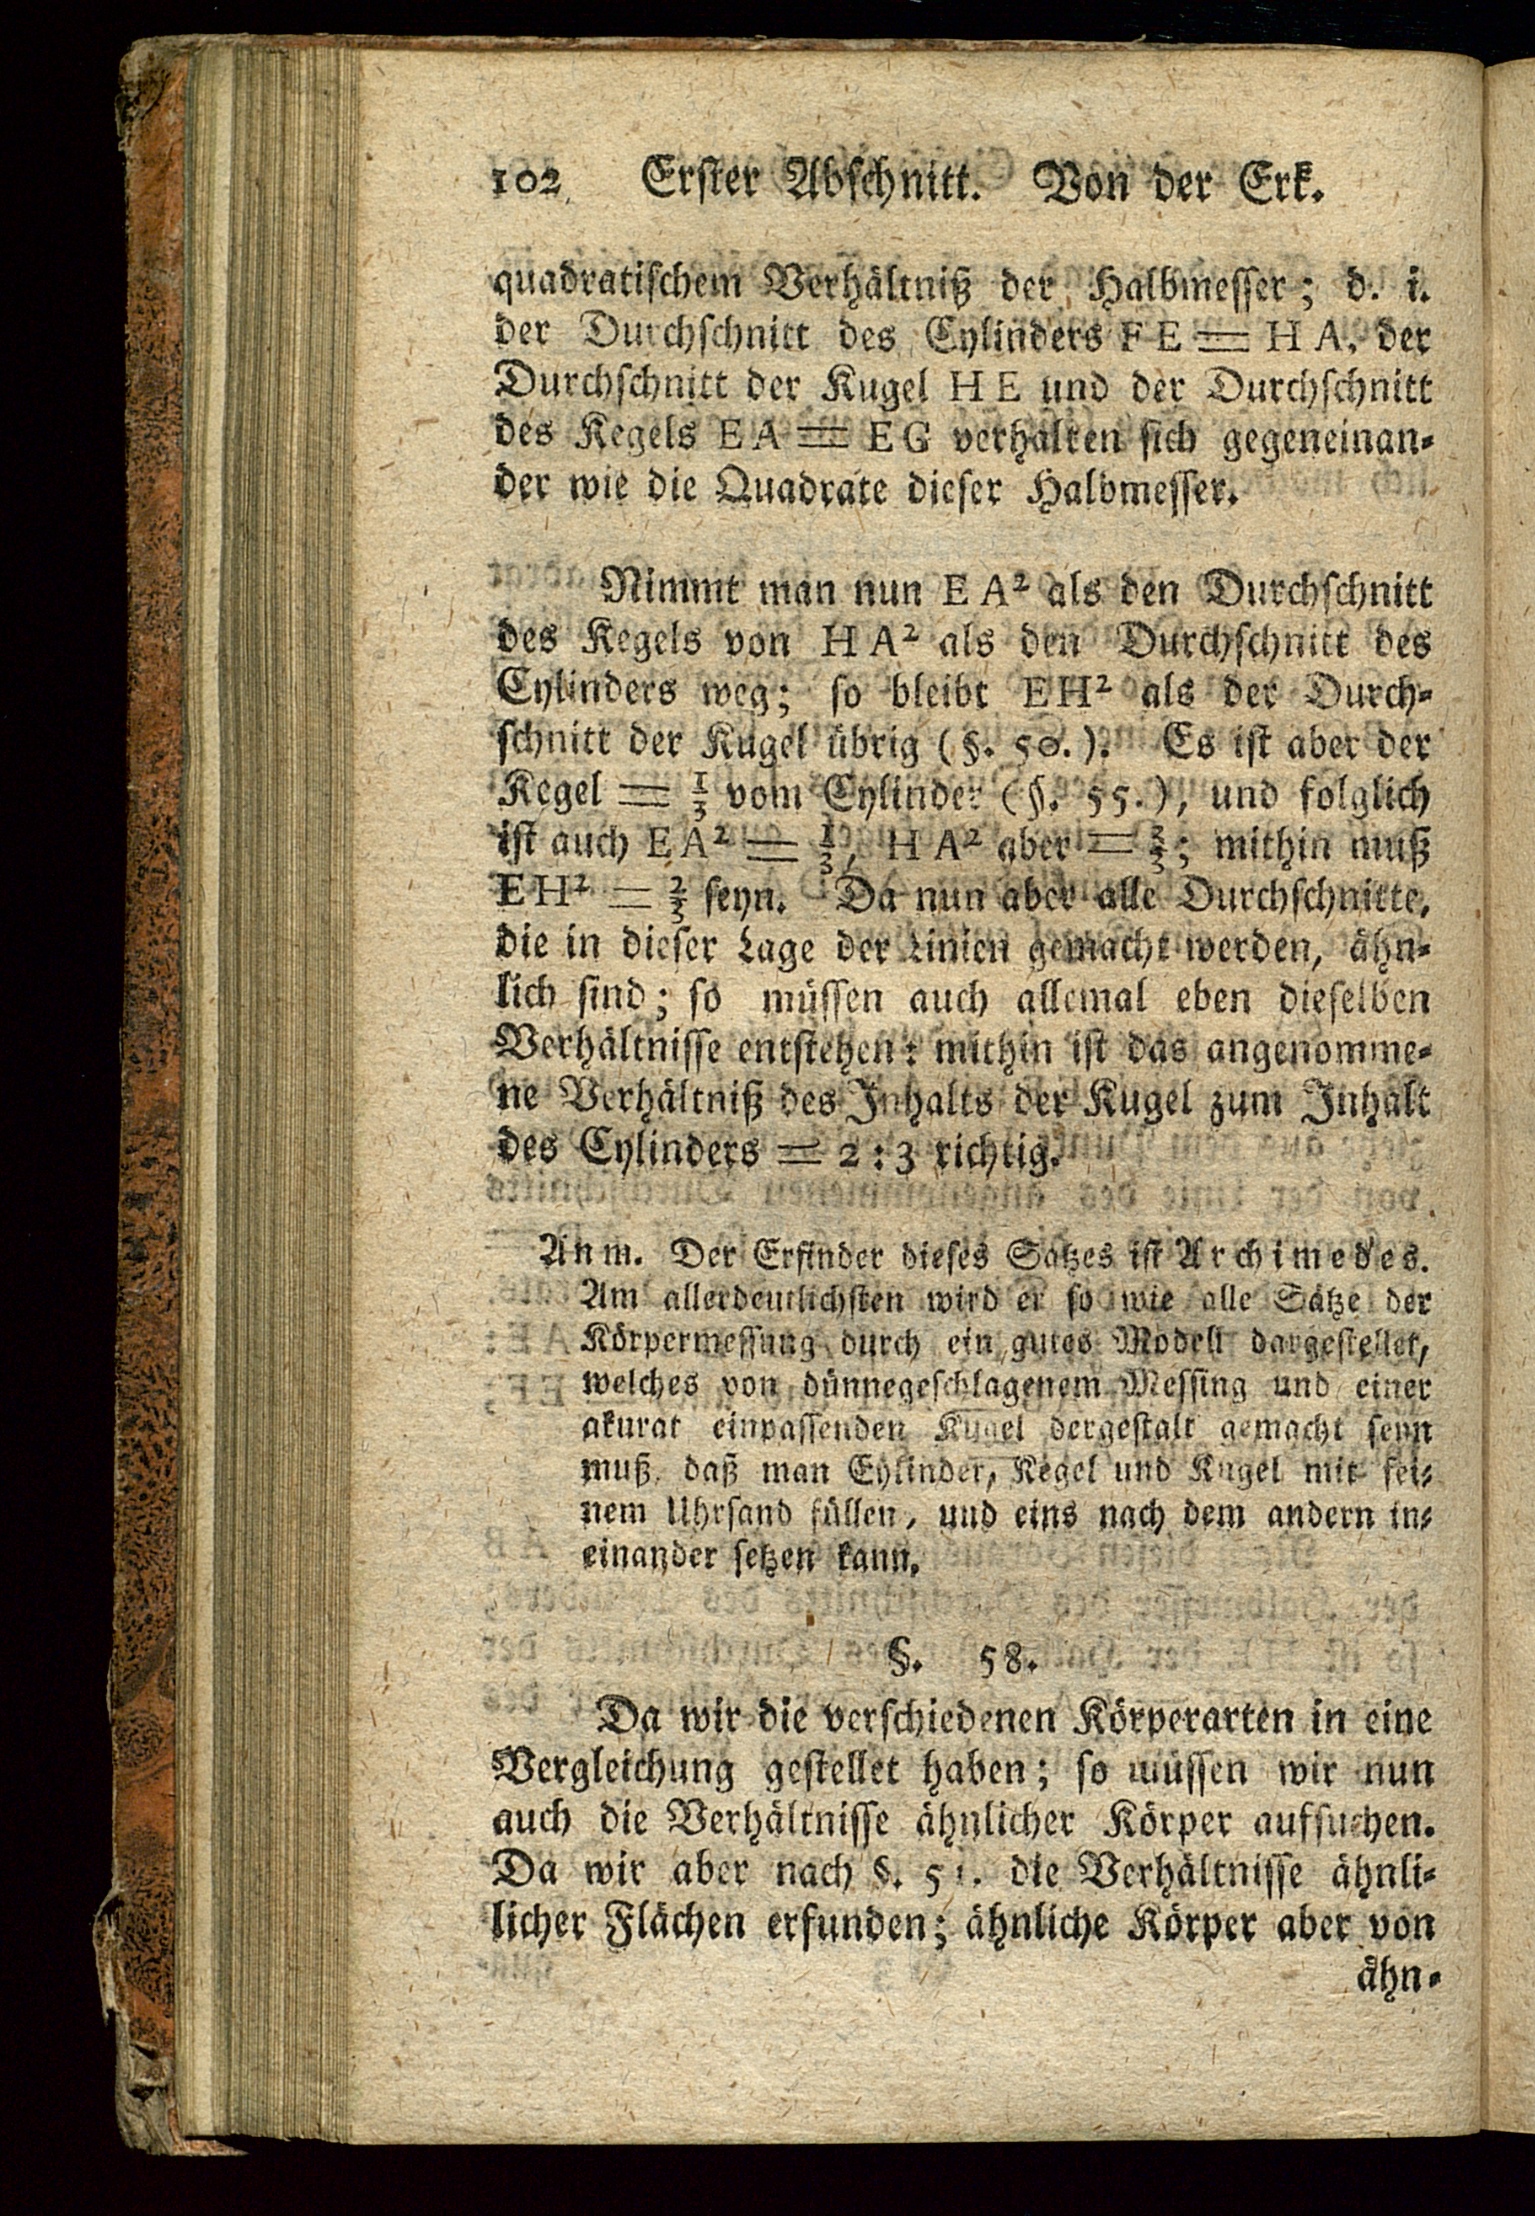 102 Erster Abschnitt. Von der Erk.
quadratischem Verhältniß der Halbmesser; d. i.
der Durchschnitt des Cylinders F E = H A, der
Durchschnitt der Kugel H E und der Durchschnitt
des Kegels E A = E G verhalten sich gegeneinan-
der wie die Quadrate dieser Halbmesser.
Nimmt man nun E A² als den Durchschnitt
des Kegels von H A² als den Durchschnitt des
Cylinders weg; so bleibt E H² als der Durch-
schnitt der Kugel übrig (§. 50.). Es ist aber der
Kegel = ⅓ vom Cylinder (§. 55.), und folglich
ist auch E A² = ⅓, H A² aber = 3/3; mithin muß
E H² = ⅔ seyn. Da nun aber alle Durchschnitte,
die in dieser Lage der Linien gemacht werden, ähn-
lich sind; so müssen auch allemal eben dieselben
Verhältnisse entstehen: mithin ist das angenomme-
ne Verhältniß des Inhalts der Kugel zum Inhalt
des Cylinders = 2 : 3 richtig.
Anm. Der Erfinder dieses Satzes ist Archimedes.
Am allerdeutlichsten wird er so wie alle Sätze der
Körpermessung durch ein gutes Modell dargestellet,
welches von dünnegeschlagenem Messing und einer
akurat einpassenden Kugel dergestalt gemacht seyn
muß, daß man Cylinder, Kegel und Kugel mit fei-
nem Uhrsand füllen, und eins nach dem andern in-
einander setzen kann.
§. 58.
Da wir die verschiedenen Körperarten in eine
Vergleichung gestellet haben; so müssen wir nun
auch die Verhältnisse ähnlicher Körper aufsuchen.
Da wir aber nach §. 51. die Verhältnisse ähnli-
licher Flächen erfunden; ähnliche Körper aber von
ähn-